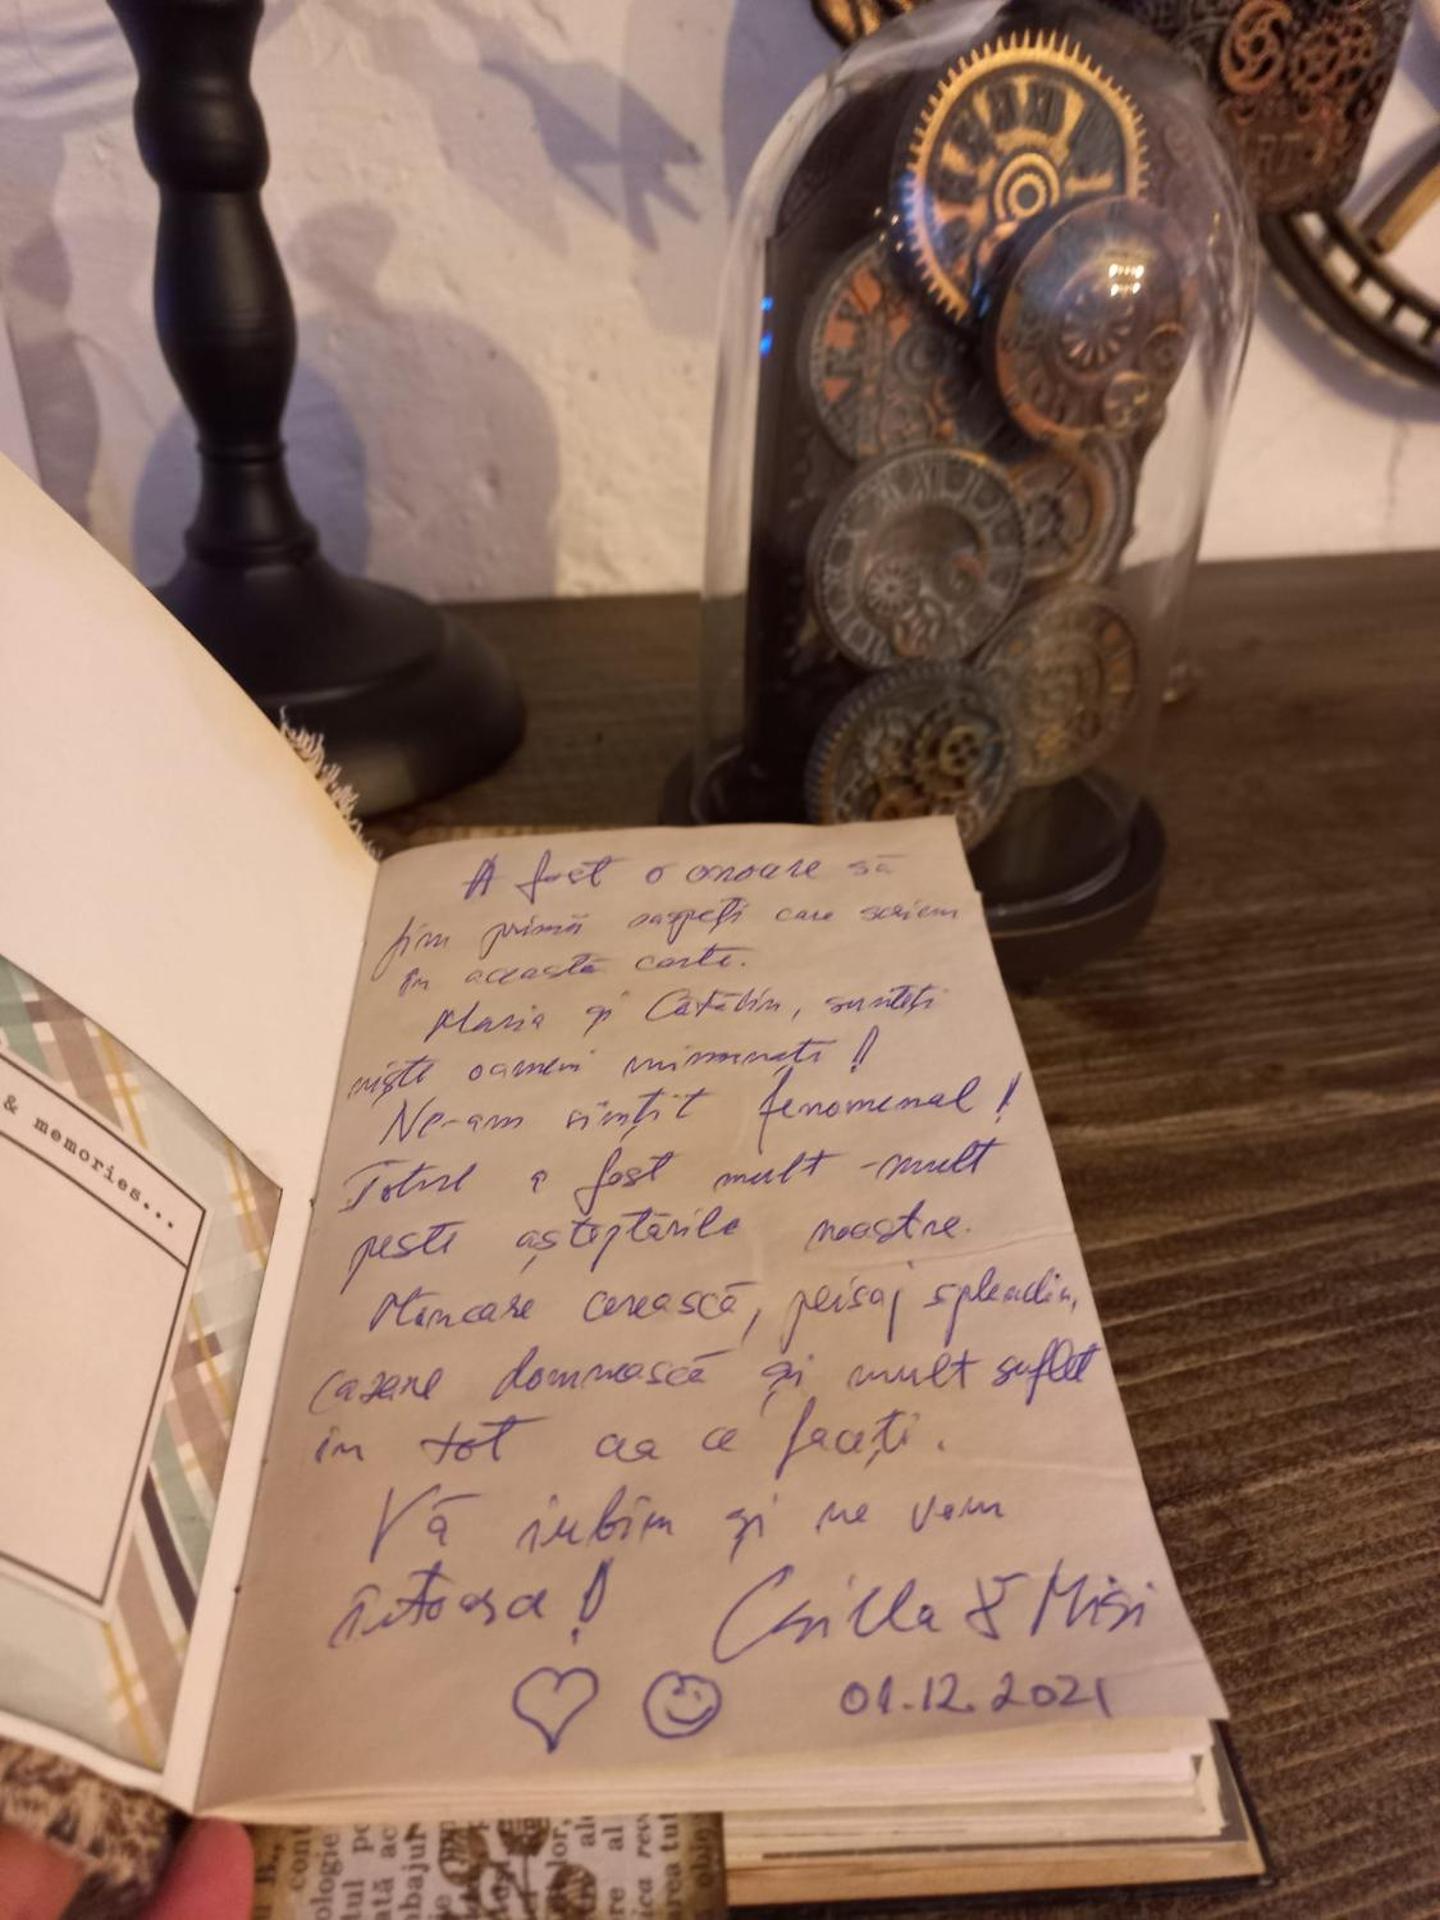 & memories...
A fost o onoare să
fim primii oaspeți care scriem
în această carte.
Maria și Cătălin, sunteți
niște oameni minunați!
Ne-am simțit fenomenal!
Totul a fost mult-mult
peste așteptările noastre.
Mâncare cerească, peisaj splendid,
cazare domnească și mult suflet
in tot cea ce faceți.
Vă iubim și ne vom
întoarce!
Csilla & Misi
01.12.2021